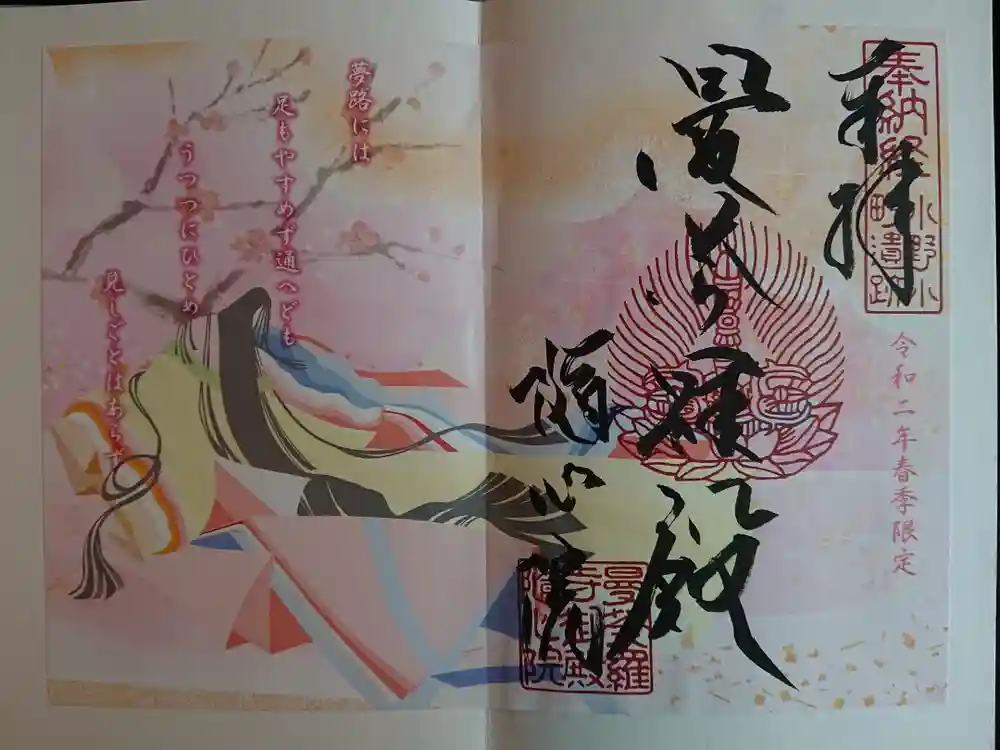 奉納経
小野小
町遺跡
奉拝
令和二年春季限定
曼荼羅殿
隨心院
曼荼羅
寺御殿
隨心院
夢路には
足もやすめず通へども
うつつにひとめ
見しごとはあらず